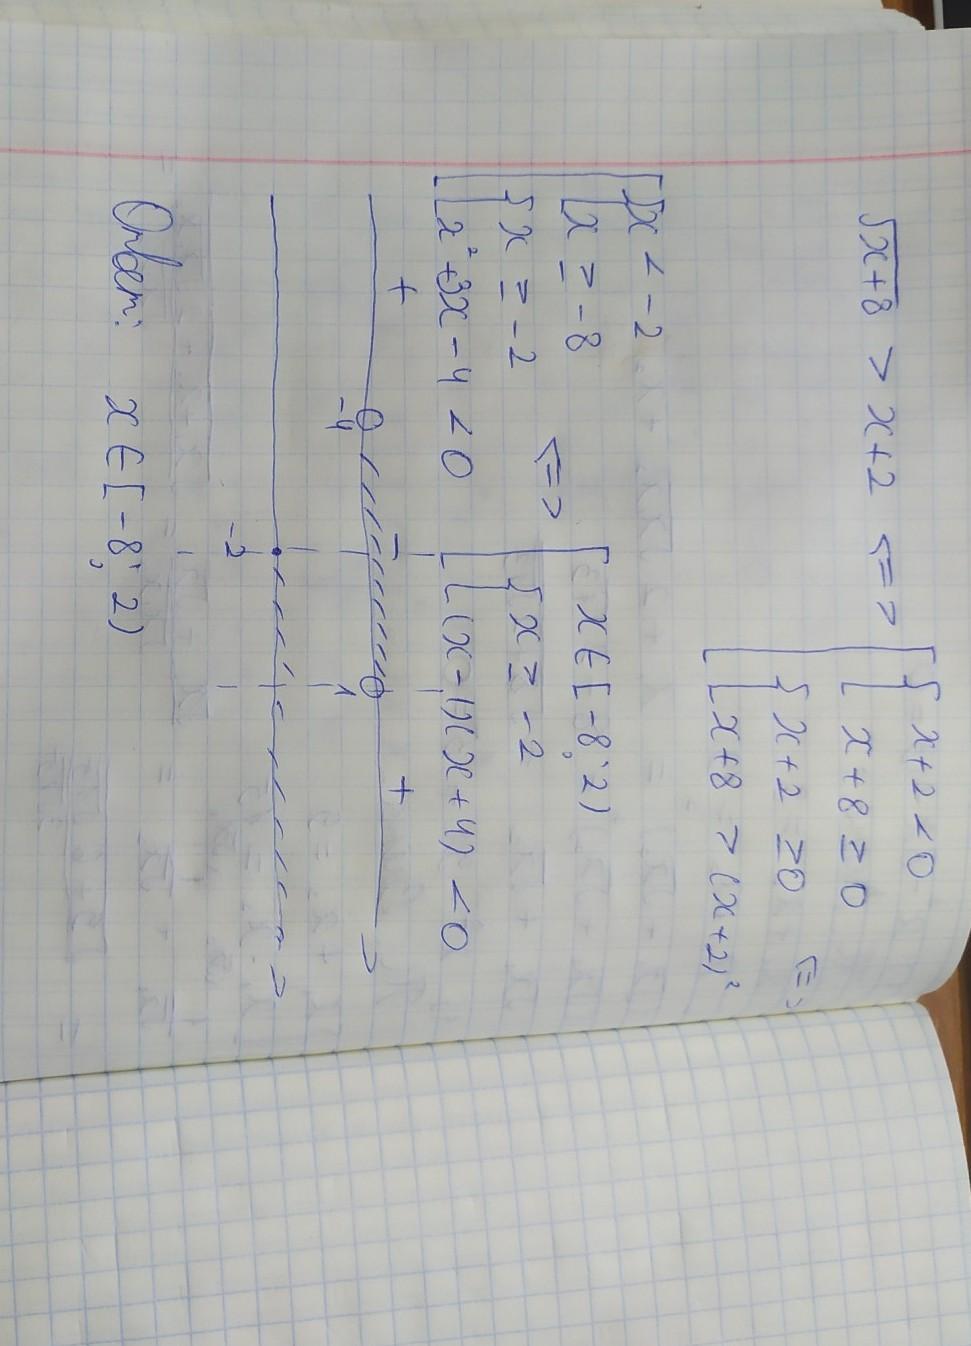 √x+8 > x+2 <=> [ { x+2 < 0
x+8 ≥ 0
{ x+2 ≥ 0 <=>
x+8 > (x+2)²
[ { x < -2
x ≥ -8
{ x ≥ -2
x²+3x-4 < 0
<=> [ x ∈ [-8; 2)
{ x ≥ -2
(x-1)(x+4) < 0
+ - +
-4 1
-2
Ответ: x ∈ [-8; 2)